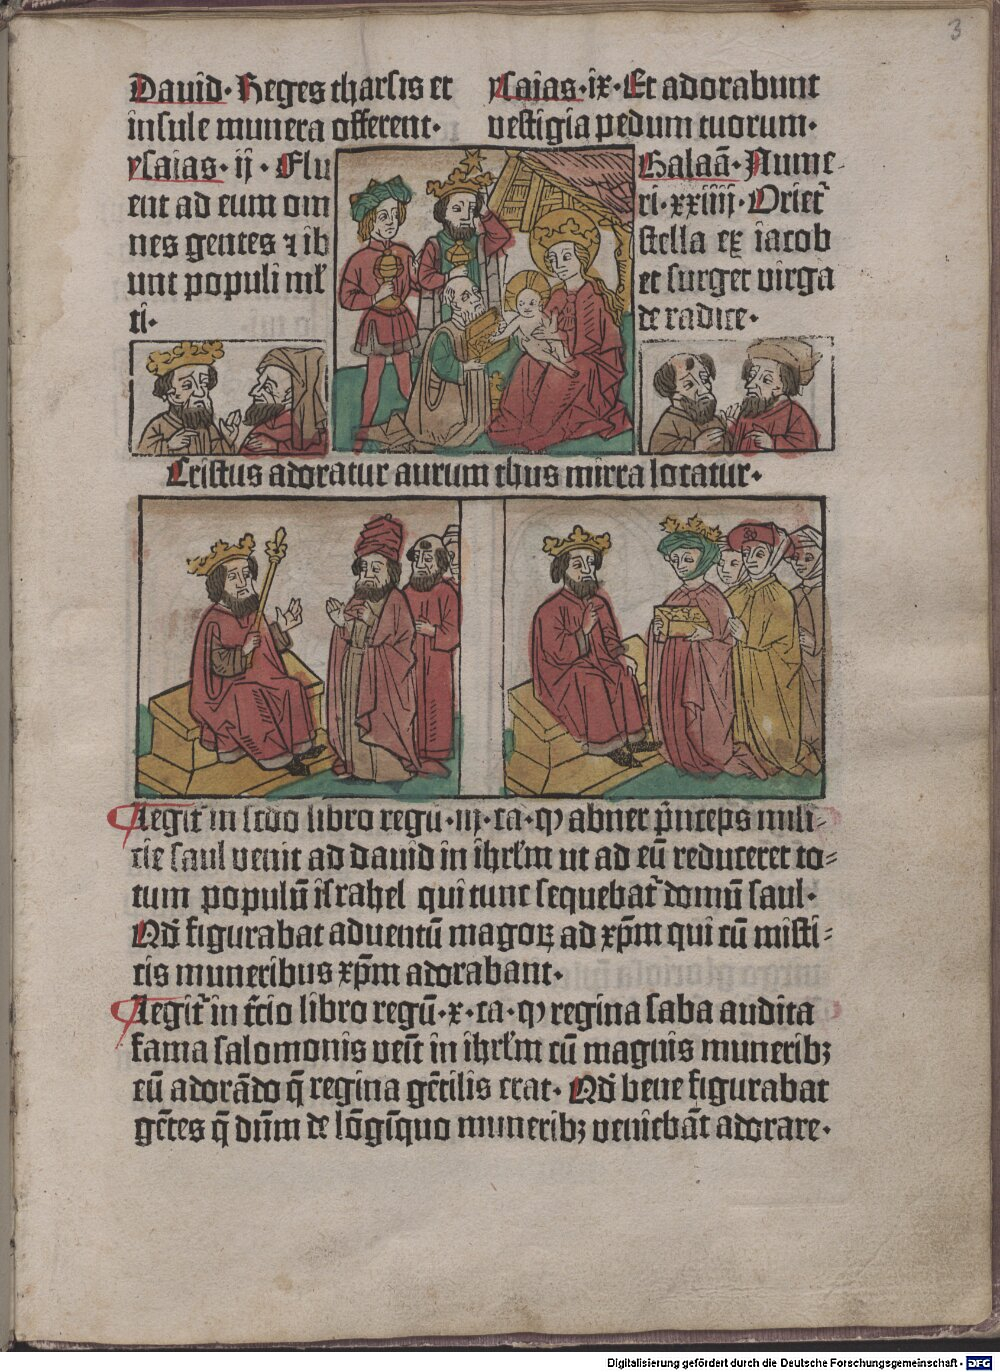 3
Dauid· Reges tharsis et
insule munera offerent·
ysaias·ix·Et adorabunt
vestigia pedum tuorum·
ysaias·ij·Flu
ent ad eum om
nes gentes ⁊ ib
unt populi ml̄
ti·
Balaā·Nume-
ri·xxiiij·Oriet̄
stella ex iacob
et surget virga
de radice·
Cristus adoratur aurum thus mirra locatur·
Legit̄ in scd̄o libro regū·iij·ca·ꝙ abner p̄nceps mili-
cie saul venit ad dauid in ihrl̄m ut ad eū reduceret to-
tum populū israhel qui tunc sequebat̄ domū saul·
Qd̄ figurabat aduentū magoꝝ ad xp̄m qui cū misti-
cis muneribus xp̄m adorabant·
Legit̄ in t̄cio libro regū·x·ca·ꝙ regina saba audita
fama salomonis veīt in ihrl̄m cū magnis muneribꝫ
eū adorādo q̄ regina gētilis erat· Qd̄ bene figurabat
gētes q̄ dn̄m de lōgīquo muneribꝫ veniebāt adorare·
Digitalisierung gefördert durch die Deutsche Forschungsgemeinschaft - DFG